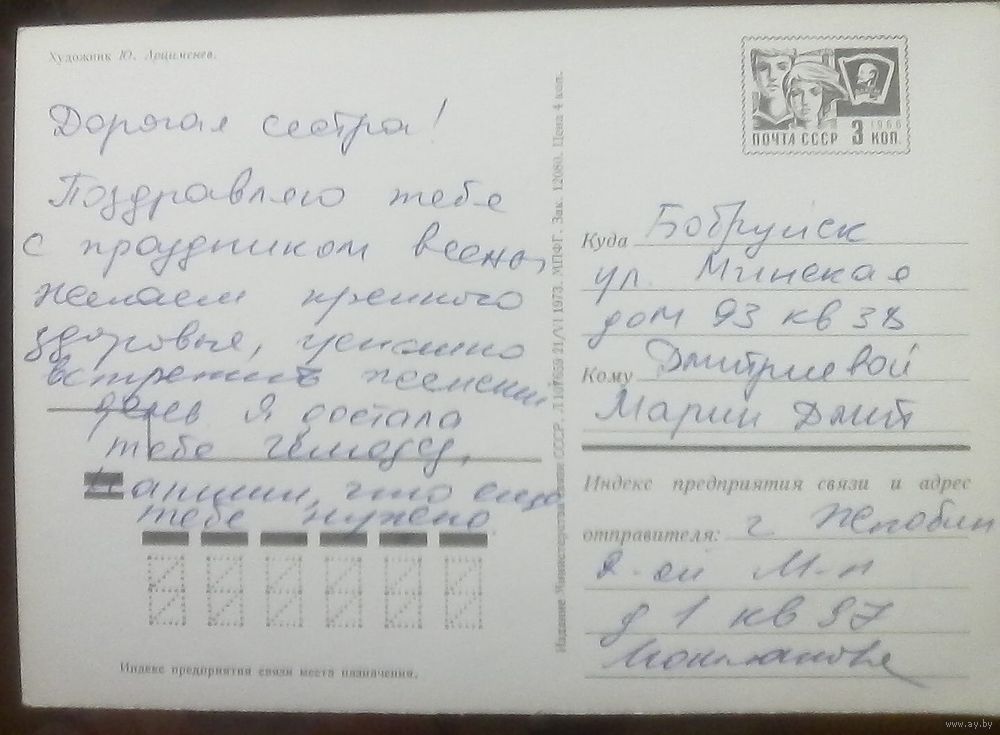 Художник Ю. Арцименев.
Дорогая сестра!
Поздравляю тебя
с праздником весны,
желаем крепкого
здоровья, успешно
встретить женский
день Я достала
тебе
Напиши, что еще
тебе нужно
Индекс предприятия связи места назначения.
Издание Министерства связи СССР. 21/VI 1973. МПФГ. Зак. 12080. Цена 4 коп.
ПОЧТА СССР 3 КОП.
1966
Куда Бобруйск
ул. Минская
дом 93 кв 38
Кому Дмитриевой
Марии Дмит
Индекс предприятия связи и адрес
отправителя: г Жлобин
2-ой м-н
д 1 кв 97
www.ay.by